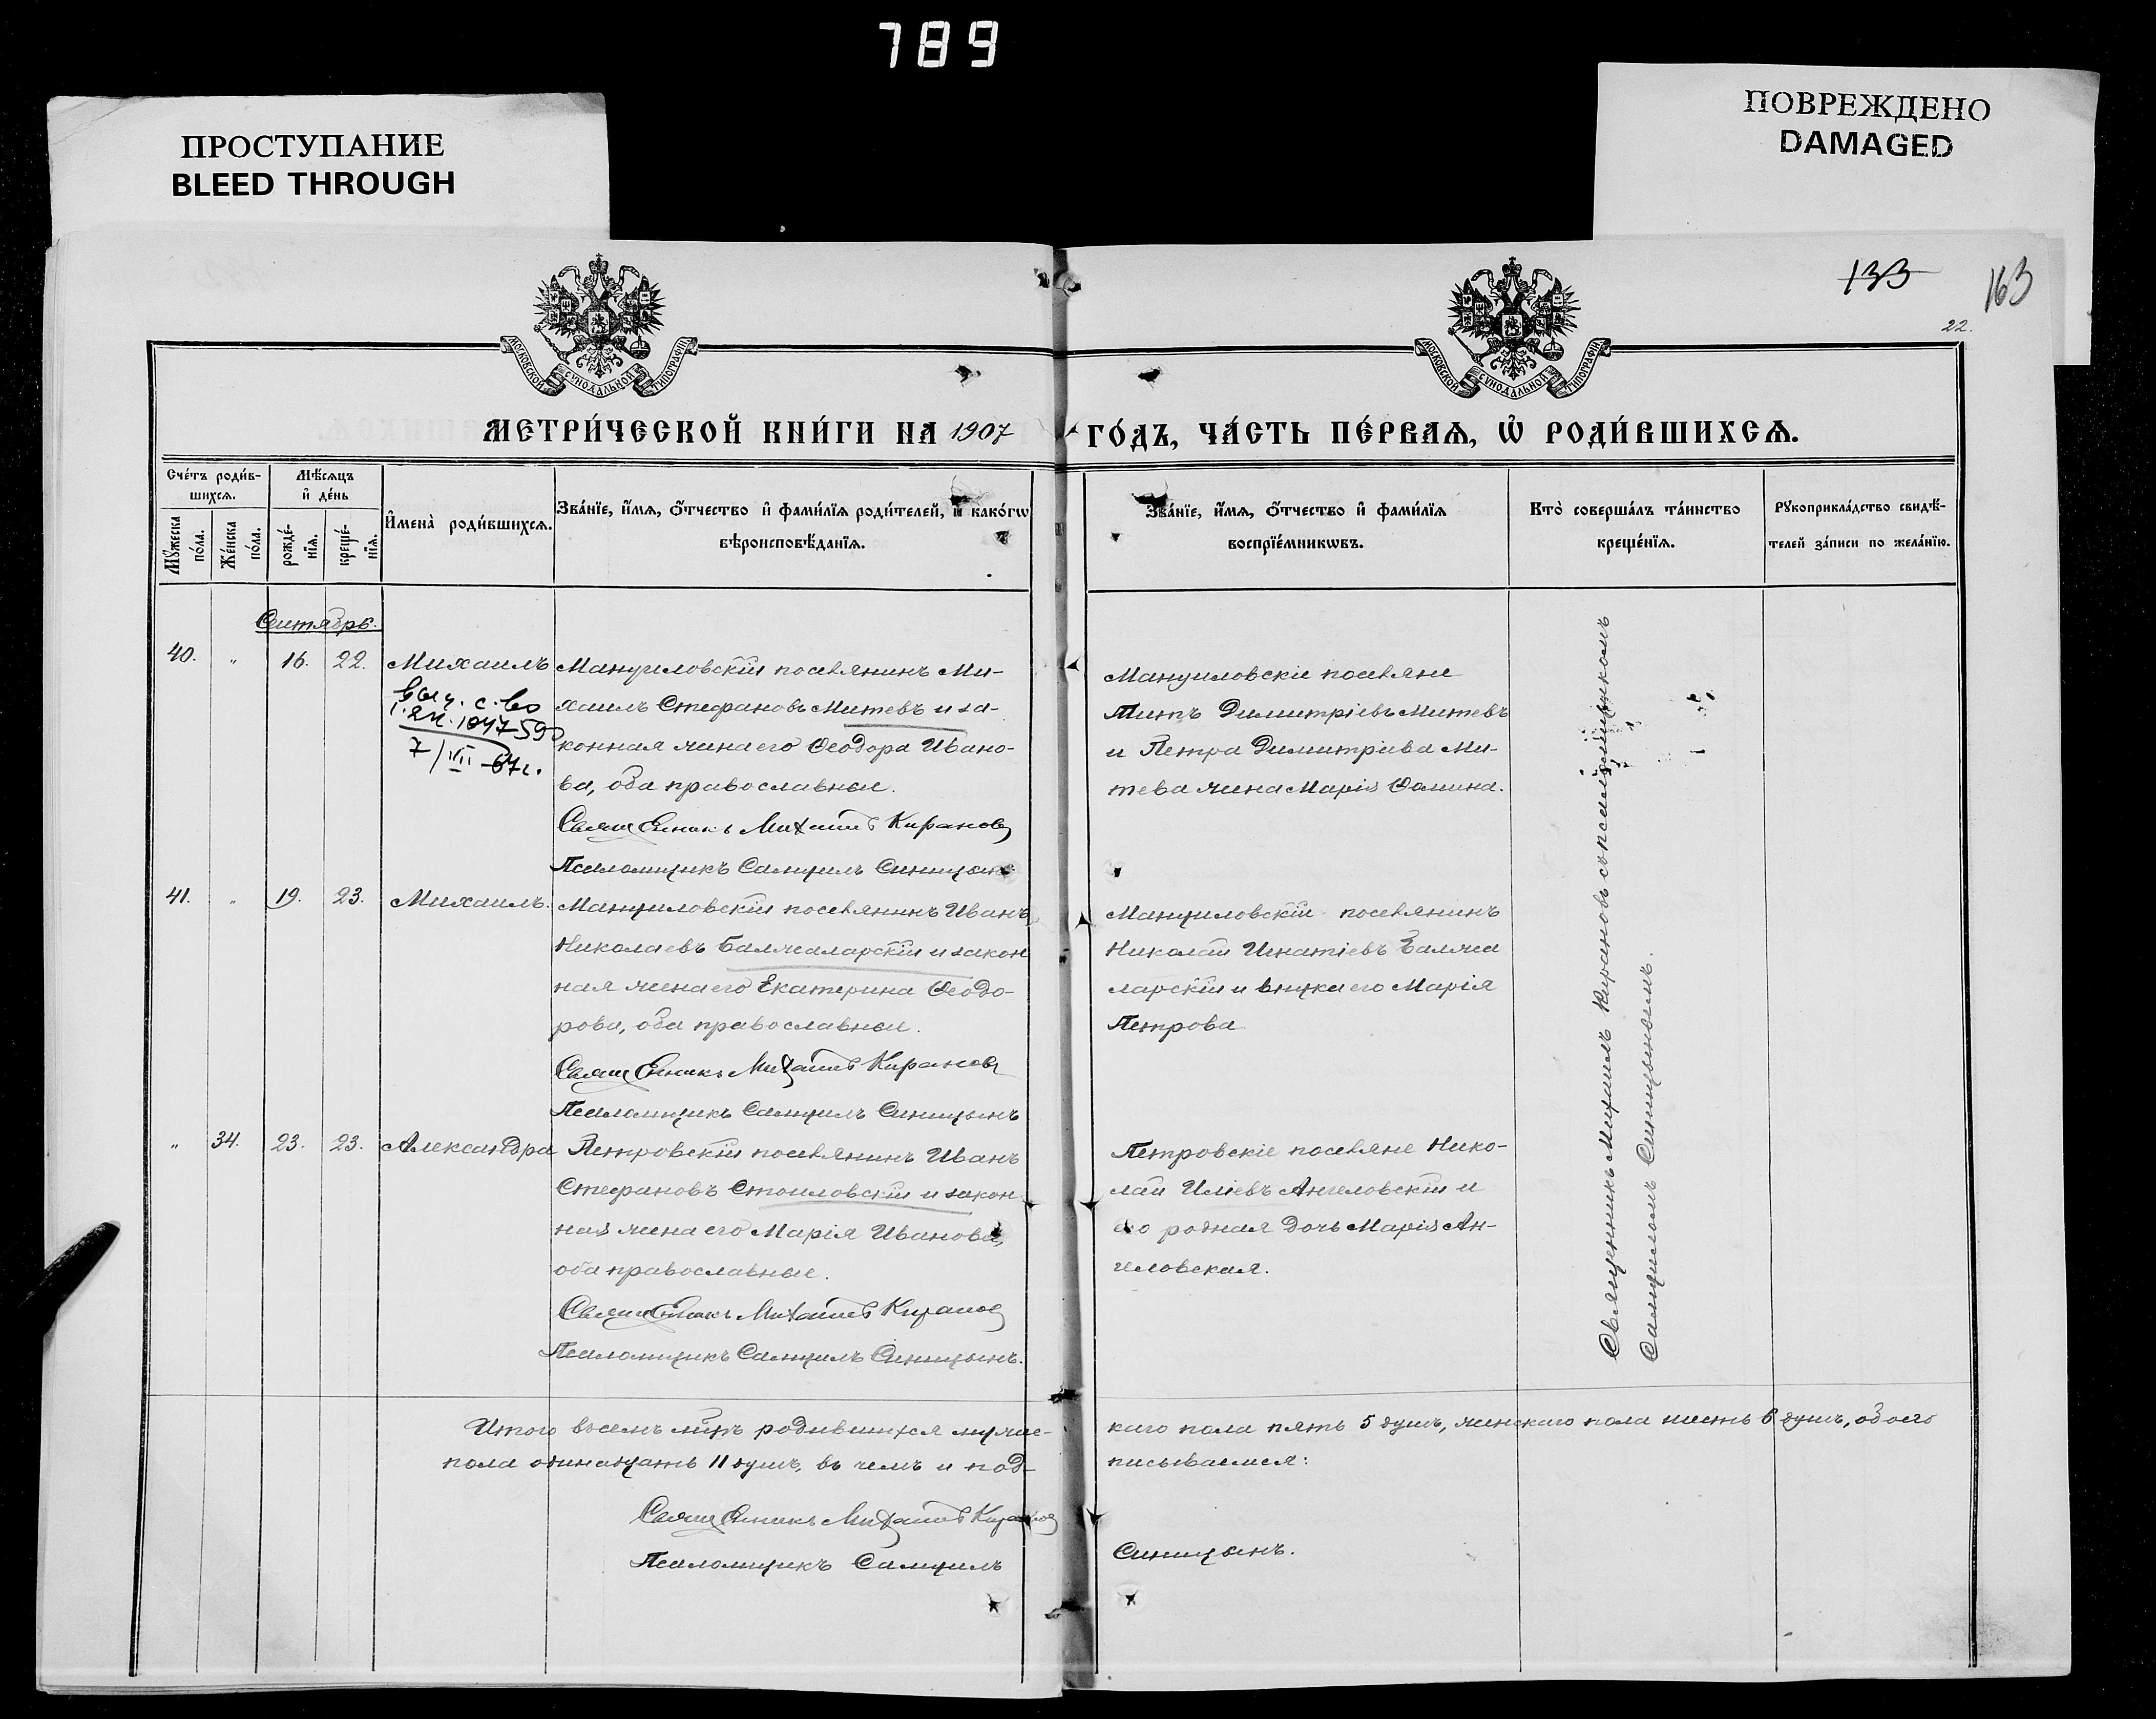 789
ПРОСТУПАНИЕ
BLEED THROUGH
ПОВРЕЖДЕНО
DAMAGED
133
163
22.
МОСКОВСКОЙ СѴНОДАЛЬНОЙ ТИПОГРАФІИ
МОСКОВСКОЙ СѴНОДАЛЬНОЙ ТИПОГРАФІИ
МЕТРИ́ЧЕСКОЙ КНИ́ГИ НА 1907 ГО́ДЪ, ЧА́СТЬ ПЕ́РВАѦ, Ѡ҆ РОДИ́ВШИХСѦ.
Сче́тъ роди́в-
шихсѧ.
Мѣ́сѧцъ
и҆ де́нь
Мꙋ́жеска
по́ла.
Же́нска
по́ла.
рожде́-
нїѧ.
креще́-
нїѧ.
И҆мена̀ роди́вшихсѧ.
Зва́нїе, и҆́мѧ, ѻ҆́тчество и҆ фами́лїѧ роди́телей, и҆ како́гѡ
вѣроисповѣ́данїѧ.
Зва́нїе, и҆́мѧ, ѻ҆́тчество и҆ фами́лїѧ
воспрїе́мникѡвъ.
Кто̀ соверша́лъ та́инство
креще́нїѧ.
Рꙋкоприкла́дство свидѣ́-
телей за́писи по жела́нїю.
Сентябрь.
40. „ 16. 22. Михаилъ
Мануиловскій поселянинъ Ми-
хаилъ Стефановъ Митевъ и за-
конная жена его Ѳеодора Ивано-
ва, оба православные.
Священникъ Михаилъ Кирановъ
Псаломщикъ Самуилъ Синицынъ
7/VII-67г.
Мануиловскіе поселяне
Димитріевъ Митевъ
и Петра Димитріева Ми-
тева жена Марія Ѳомина.
41. „ 19. 23. Михаилъ.
Мануиловскій поселянинъ Иванъ
Николаевъ Балжаларскій и закон
ная жена его Екатерина Ѳеодо-
рова, оба православные.
Священникъ Михаилъ Кирановъ
Псаломщикъ Самуилъ Синицынъ
Мануиловскій поселянинъ
Николай Игнатіевъ Балжа
ларскій и внука его Марія
Петрова
„ 34. 23. 23. Александра
Петровскій поселянинъ Иванъ
Стефановъ Стоиловскій и закон
ная жена его Марія Иванова,
оба православные.
Священникъ Михаилъ Кирановъ
Псаломщикъ Самуилъ Синицынъ.
Петровскіе поселяне Нико-
лай Иліевъ Ангеловскій и
его родная дочь Марія Ан-
геловская.
Священникъ Михаилъ Кирановъ съ псаломщикомъ
Самуиломъ Синицынымъ.
Итого родившихся мужес-
каго пола пять 5 душъ, женскаго пола шесть 6 душъ, обоего
пола одинадцать 11 душъ, въ чемъ и под-
писываемся:
Священникъ Михаилъ Кирановъ
Псаломщикъ Самуилъ Синицынъ.